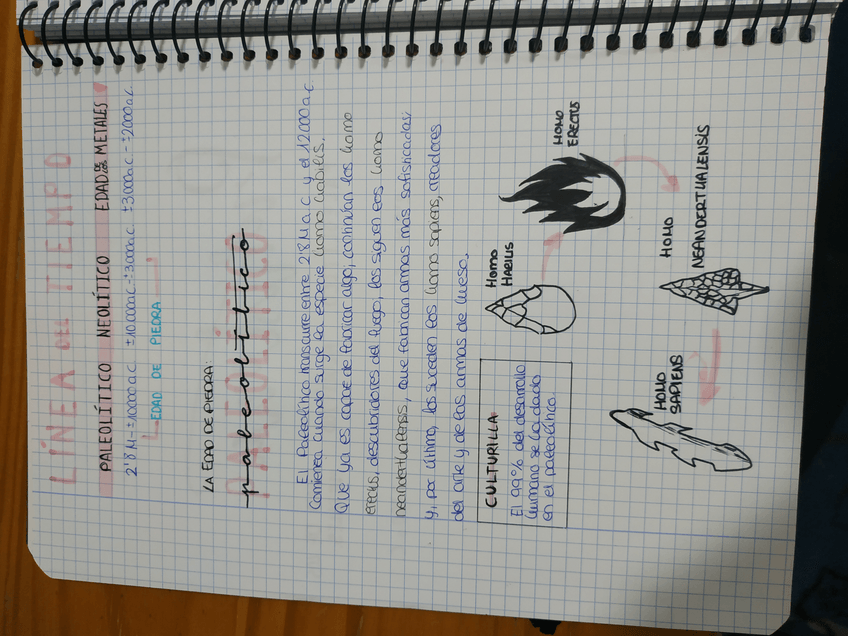 LÍNEA DEL TIEMPO
PALEOLÍTICO NEOLÍTICO EDAD DE METALES
2'8 M-±10000 a.C ±10.000a.C-±3000a.C ±3.000a.C-±2000a.C.
EDAD DE PIEDRA
LA EDAD DE PIEDRA:
PALEOLÍTICO
paleolítico
El Paleolítico transcurre entre 2'8 M a.C y el 12.000 a.C.
Comienza cuando surge la especie homo habilis.
Que ya es capaz de fabricar algo, continúan los homo
erectus, descubridores del fuego, los siguen los homo
neanderthalensis, que fabrican armas más sofisticadas;
y, por último, los suceden los homo sapiens, creadores
del arte y de las armas de hueso.
CULTURILLA
El 99% del desarrollo
humano se ha dado
en el paleolítico.
HOMO
HABILIS
HOMO
ERECTUS
HOMO
NEANDERTHALENSIS
HOMO
SAPIENS